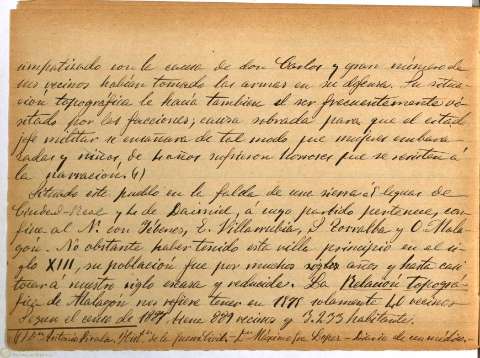 simpatizado con la causa de don Carlos y gran número de
sus vecinos habían tomado las armas en su defensa. Su situa-
ción topográfica le hacía tambien el ser frecuentemente vi-
sitado por las facciones; causa sobrada para que el citado
jefe militar se ensañara de tal modo que mujeres embara-
zadas y niños, de 4 años sufrieron horrores que se resisten á
la narracion. (1)
Situado este pueblo en la falda de una sierra á leguas de
Ciudad-Real y 4 de Daimiel, á cuyo partido pertenece, con-
fina al N. con Yébenes, E. Villarrubia, S. Torralba y O. Mala-
gon. No obstante haber tenido esta villa principió en el si-
glo XIII, su población fue por muchos siglos años y hasta casi
tocar á nuestro siglo escasa y reducida. La Relación topográ-
fica de Malagón nos refiere tener en 1575 solamente 40 vecinos
Segun el censo de 1887 tiene 889 vecinos y 3.233 habitante.
(1) Dn Antonio Pirala, Histª de la guerra Civil - Dn Máximo López - Diario de un médico.